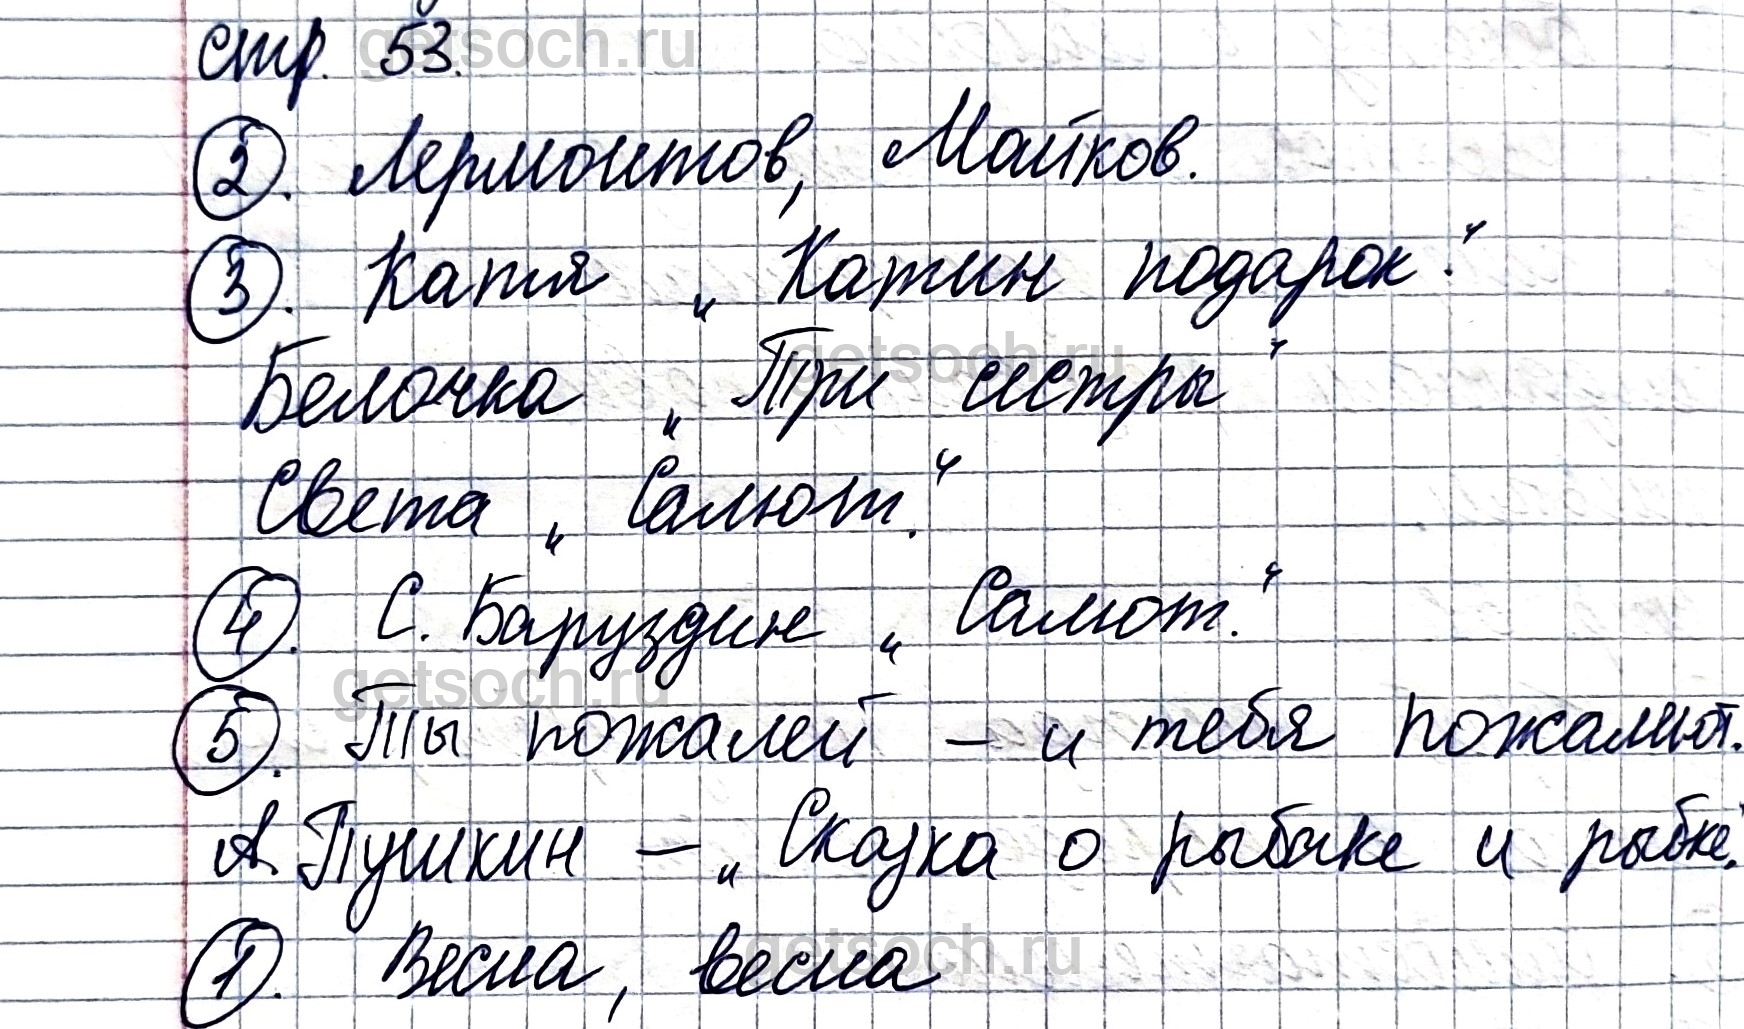 стр. 53.
2. Лермонтов, Майков.
3. Катя „Катин подарок."
Белочка „Три сестры"
Света „Салют."
4. С. Баруздин „Салют."
5. Ты пожалей – и тебя пожалиют.
А. Пушкин – „Сказка о рыбаке и рыбке."
1. Весна, весна
getsoch.ru
getsoch.ru
getsoch.ru
getsoch.ru